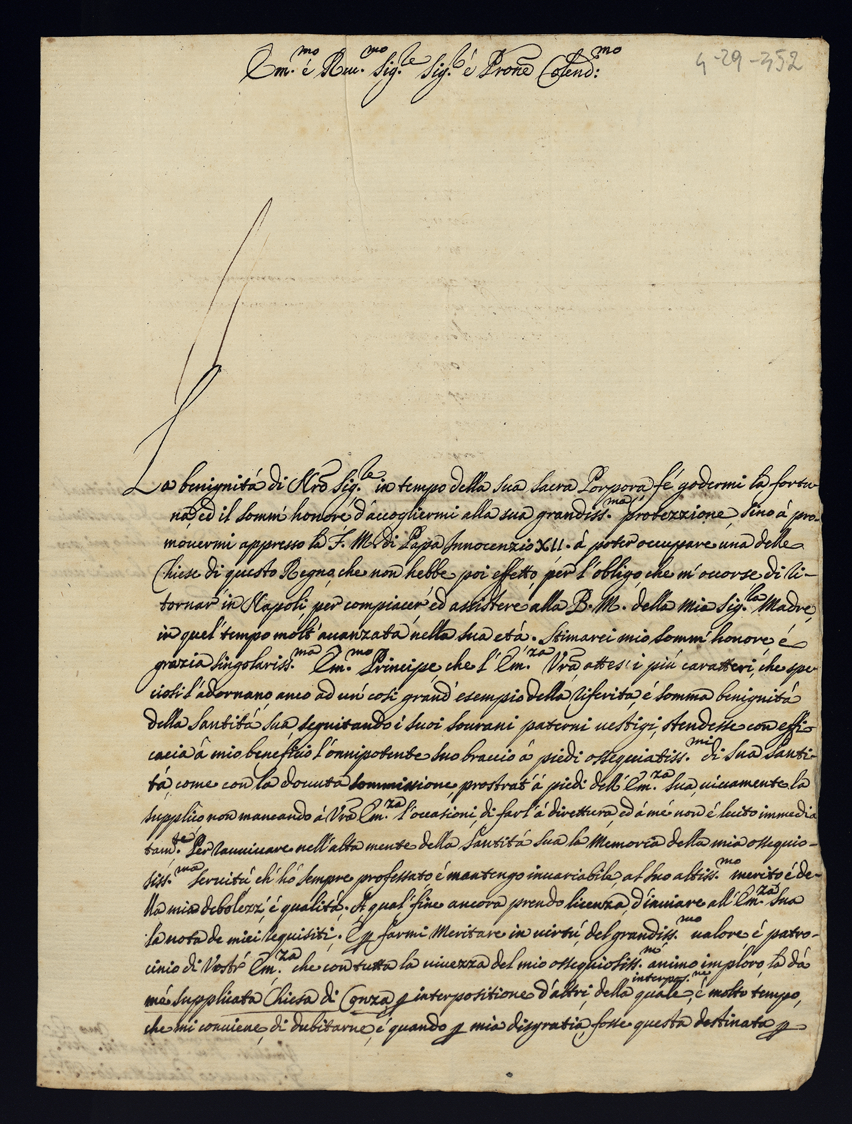 4-29-352
Em.mo è Reu.mo Sig.re Sig.r è Prone Colend:mo
La benignità di Nro Sig.re in tempo della sua sacra Porpora fé godermi la fortu-
na, ed il somm' honore d'accogliermi alla sua grandiss.ma protezzione sino à pro-
mouermi appresso la F. M. di Papa Innocenzio XII. à poter occupare una delle
Chiese di questo Regno, che non hebbe poi effetto per l'obligo che m'occorse di ri-
tornar in Napoli per compiacer' ed assistere alla B. M. della mia Sig.ra Madre,
in quel tempo molt' auanzata nella sua età. Stimarei mio somm' honore é
grazia singolariss.ma Em.mo Principe che l'Em.za Vra attesi i più caratteri, che spe-
ciosi l'adornano anco ad un' così grand' esempio della riferita é somma benignità
della Santità sua seguitando i suoi sourani paterni uestigi, stendesse con effi-
cacia à mio beneficio l'onnipotente suo braccio à piedi ossequiatiss.mi di sua Santi-
tà, come con la douuta sommissione prostrat' à piedi dell' Em.za Sua, uiuamente la
supplico non mancando à Vra Em.za l'occasioni di farl' à direttura, ed à mé non é lecito immedia-
tam.te Per rauuiuare nell' alta mente della Santità Sua la Memoria della mia ossequio-
siss.ma seruitù ch' hò sempre professato é mantengo inuariabile al suo altiss.mo merito é de-
lla mia debolezz' é qualità. A qual fine ancora prendo licenza d'inuiare all' Em.za Sua
la nota de miei requisiti. E p farmi Meritare in uirtù, del grandiss.mo ualore é patro-
cinio di Vostr' Em.za che con tutta la uiuezza del mio ossequiosiss.mo animo imploro la da
mé supplicata Chiesa di Conza p interpositione d'altri, della quale interpos.ne é molto tempo,
che mi conuiene di dubitarne, é quando p mia disgratia, fosse questa destinata p